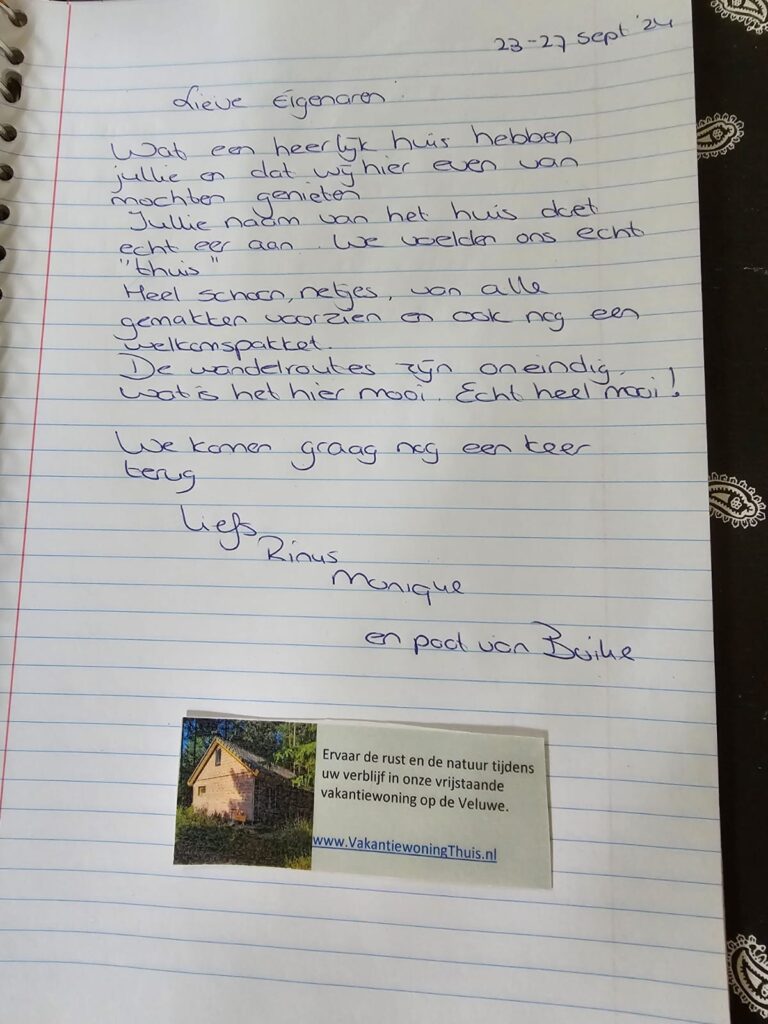 23-27 sept '24
Lieve Eigenaren
Wat een heerlijk huis hebben
jullie en dat wij hier even van
mochten genieten
Jullie naam van het huis doet
echt eer aan. We voelden ons echt
"thuis"
Heel schoon, netjes, van alle
gemakken voorzien en ook nog een
welkomspakket.
De wandelroutes zijn oneindig.
Wat is het hier mooi. Echt heel mooi!
We komen graag nog een keer
terug
Liefs
Rinus
Monique
en poot van Boike
Ervaar de rust en de natuur tijdens
uw verblijf in onze vrijstaande
vakantiewoning op de Veluwe.
www.VakantiewoningThuis.nl